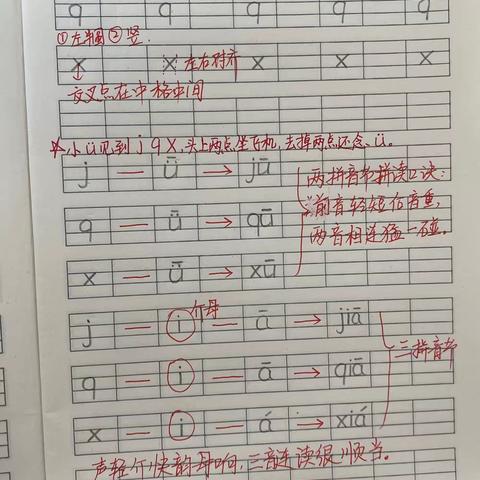 q q q q q
①左半圆②竖.
x x 左右对齐 x x x
交叉点在中格中间
☆小ü见到jqx,头上两点坐飞机,去掉两点还念ü。
j — ǖ → jū
两拼音节拼读口诀:
q — ǖ → qū
前音轻短后音重,
两音相连猛一碰。
x — ǖ → xū
介母
j — i — ā → jiā
三拼音节
q — i — ā → qiā
x — i — á → xiá
声轻介快韵母响,三音连读很顺当。